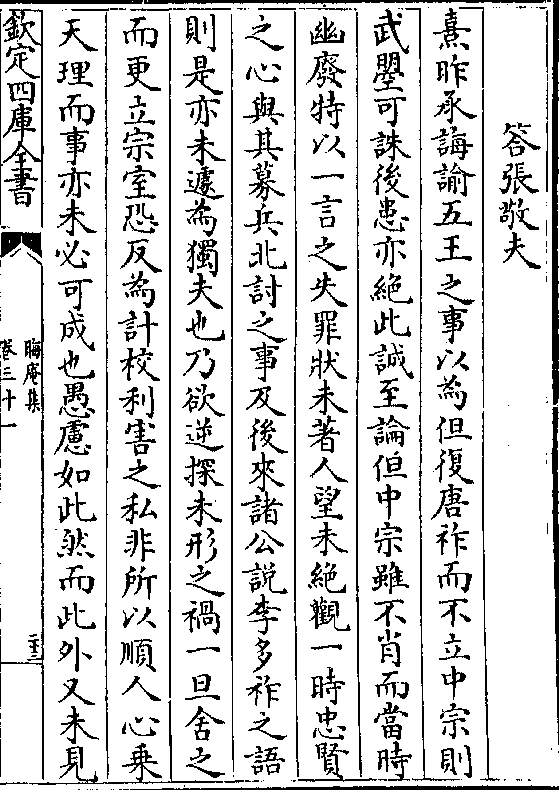 答張敬夫
熹昨承誨諭五王之事以為但復唐祚而不立中宗則
武曌可誅後患亦絕此誠至論但中宗雖不肖而當時
幽廢特以一言之失罪狀未著人望未絕觀一時忠賢
之心與其募兵北討之事及後來諸公說李多祚之語
則是亦未遽為獨夫也乃欲逆探未形之禍一旦舍之
而更立宗室恐反為計校利害之私非所以順人心乗
天理而事亦未必可成也愚慮如此然而此外又未見
欽定四庫全書
晦庵集
卷三十一
二十三